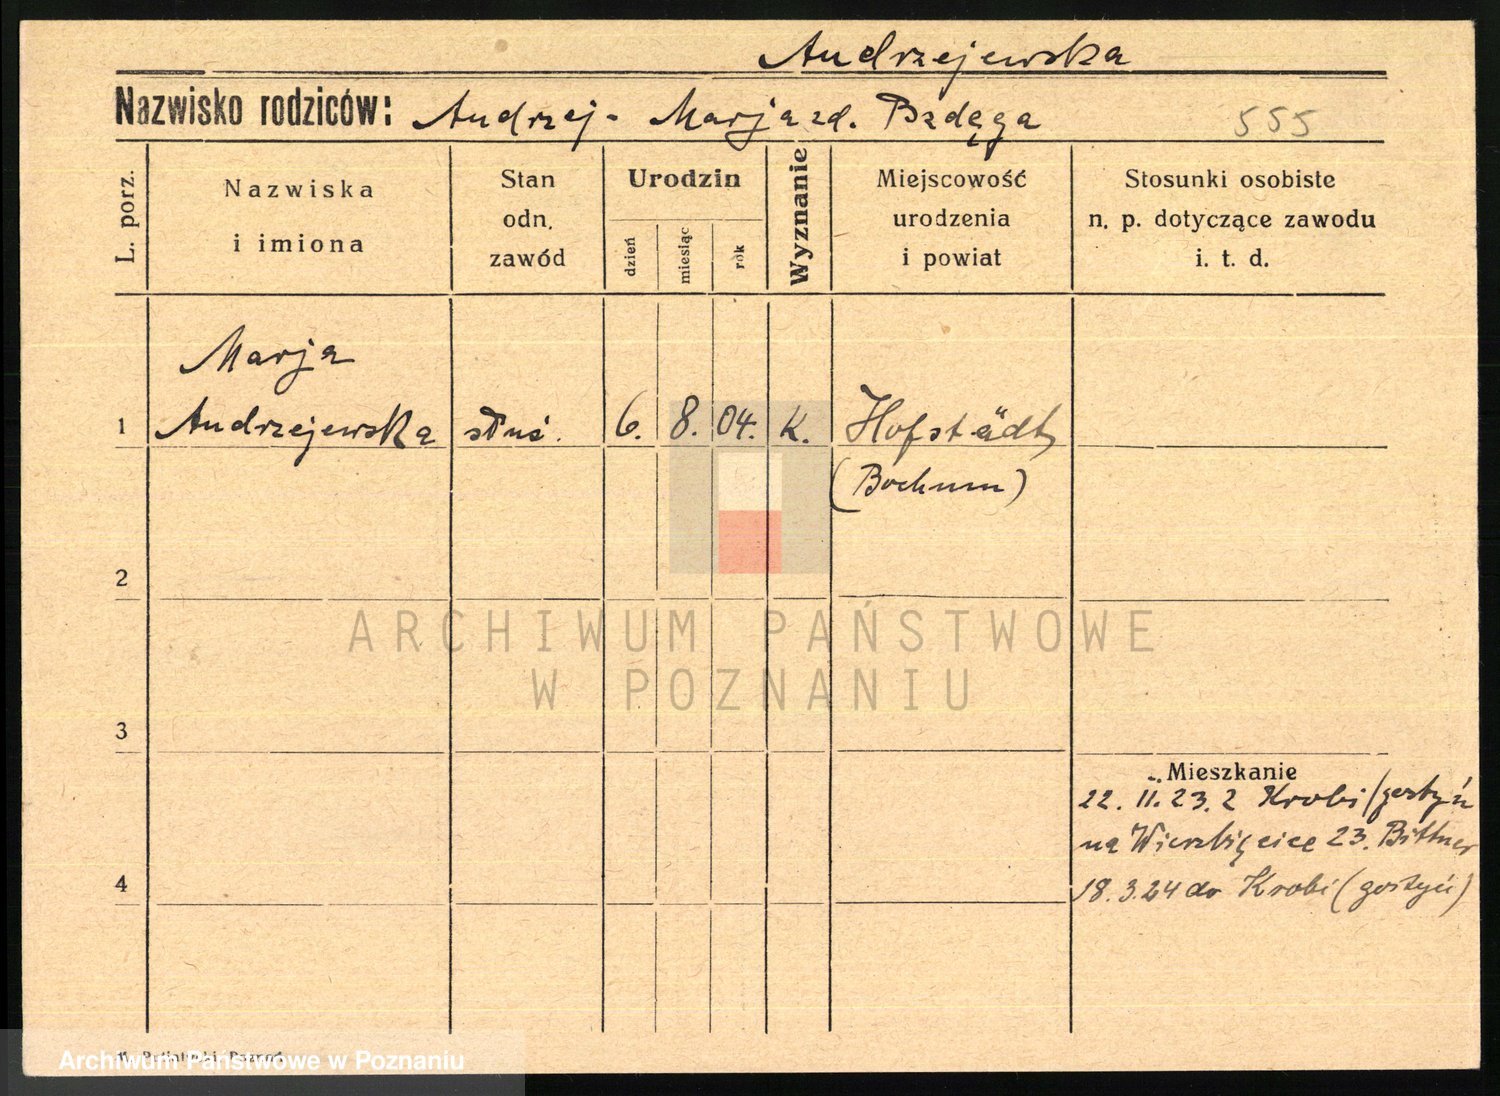 Andrzejewska
Nazwisko rodziców: Andrzej - Marja zd. Bzdęga 555
L. porz.
Nazwiska
i imiona
Stan
odn.
zawód
Urodzin
dzień
miesiąc
rok
Wyznanie
Miejscowość
urodzenia
i powiat
Stosunki osobiste
n. p. dotyczące zawodu
i. t. d.
Marja
1 Andrzejewska służ. 6. 8. 04. K. Hofstädt
(Bochum)
2
ARCHIWUM PAŃSTWOWE
W POZNANIU
3
Mieszkanie
22. II. 23. z Krobi (gostyń
na Wierzbięcice 23. Bittner
4
18. 3. 24 do Krobi (gostyń)
Archiwum Państwowe w Poznaniu